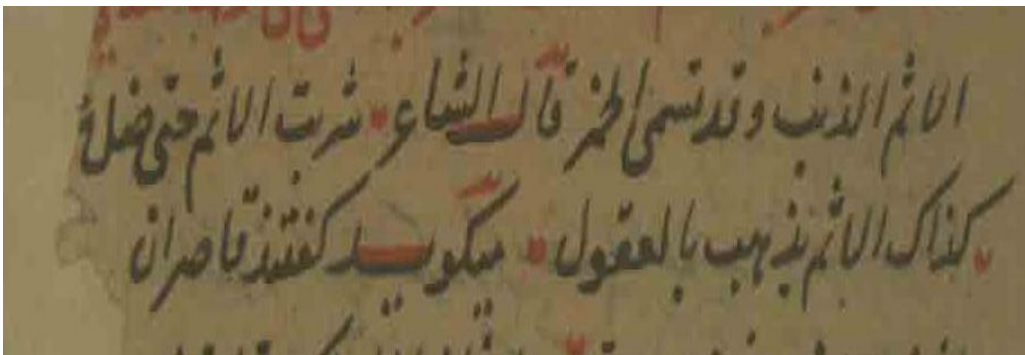 الاثم الذنب وقد تسمى الخمر قال الشاعر شربت الاثم حتى ضل
كذاك الاثم يذهب بالعقول میکوید کفتند قاصران